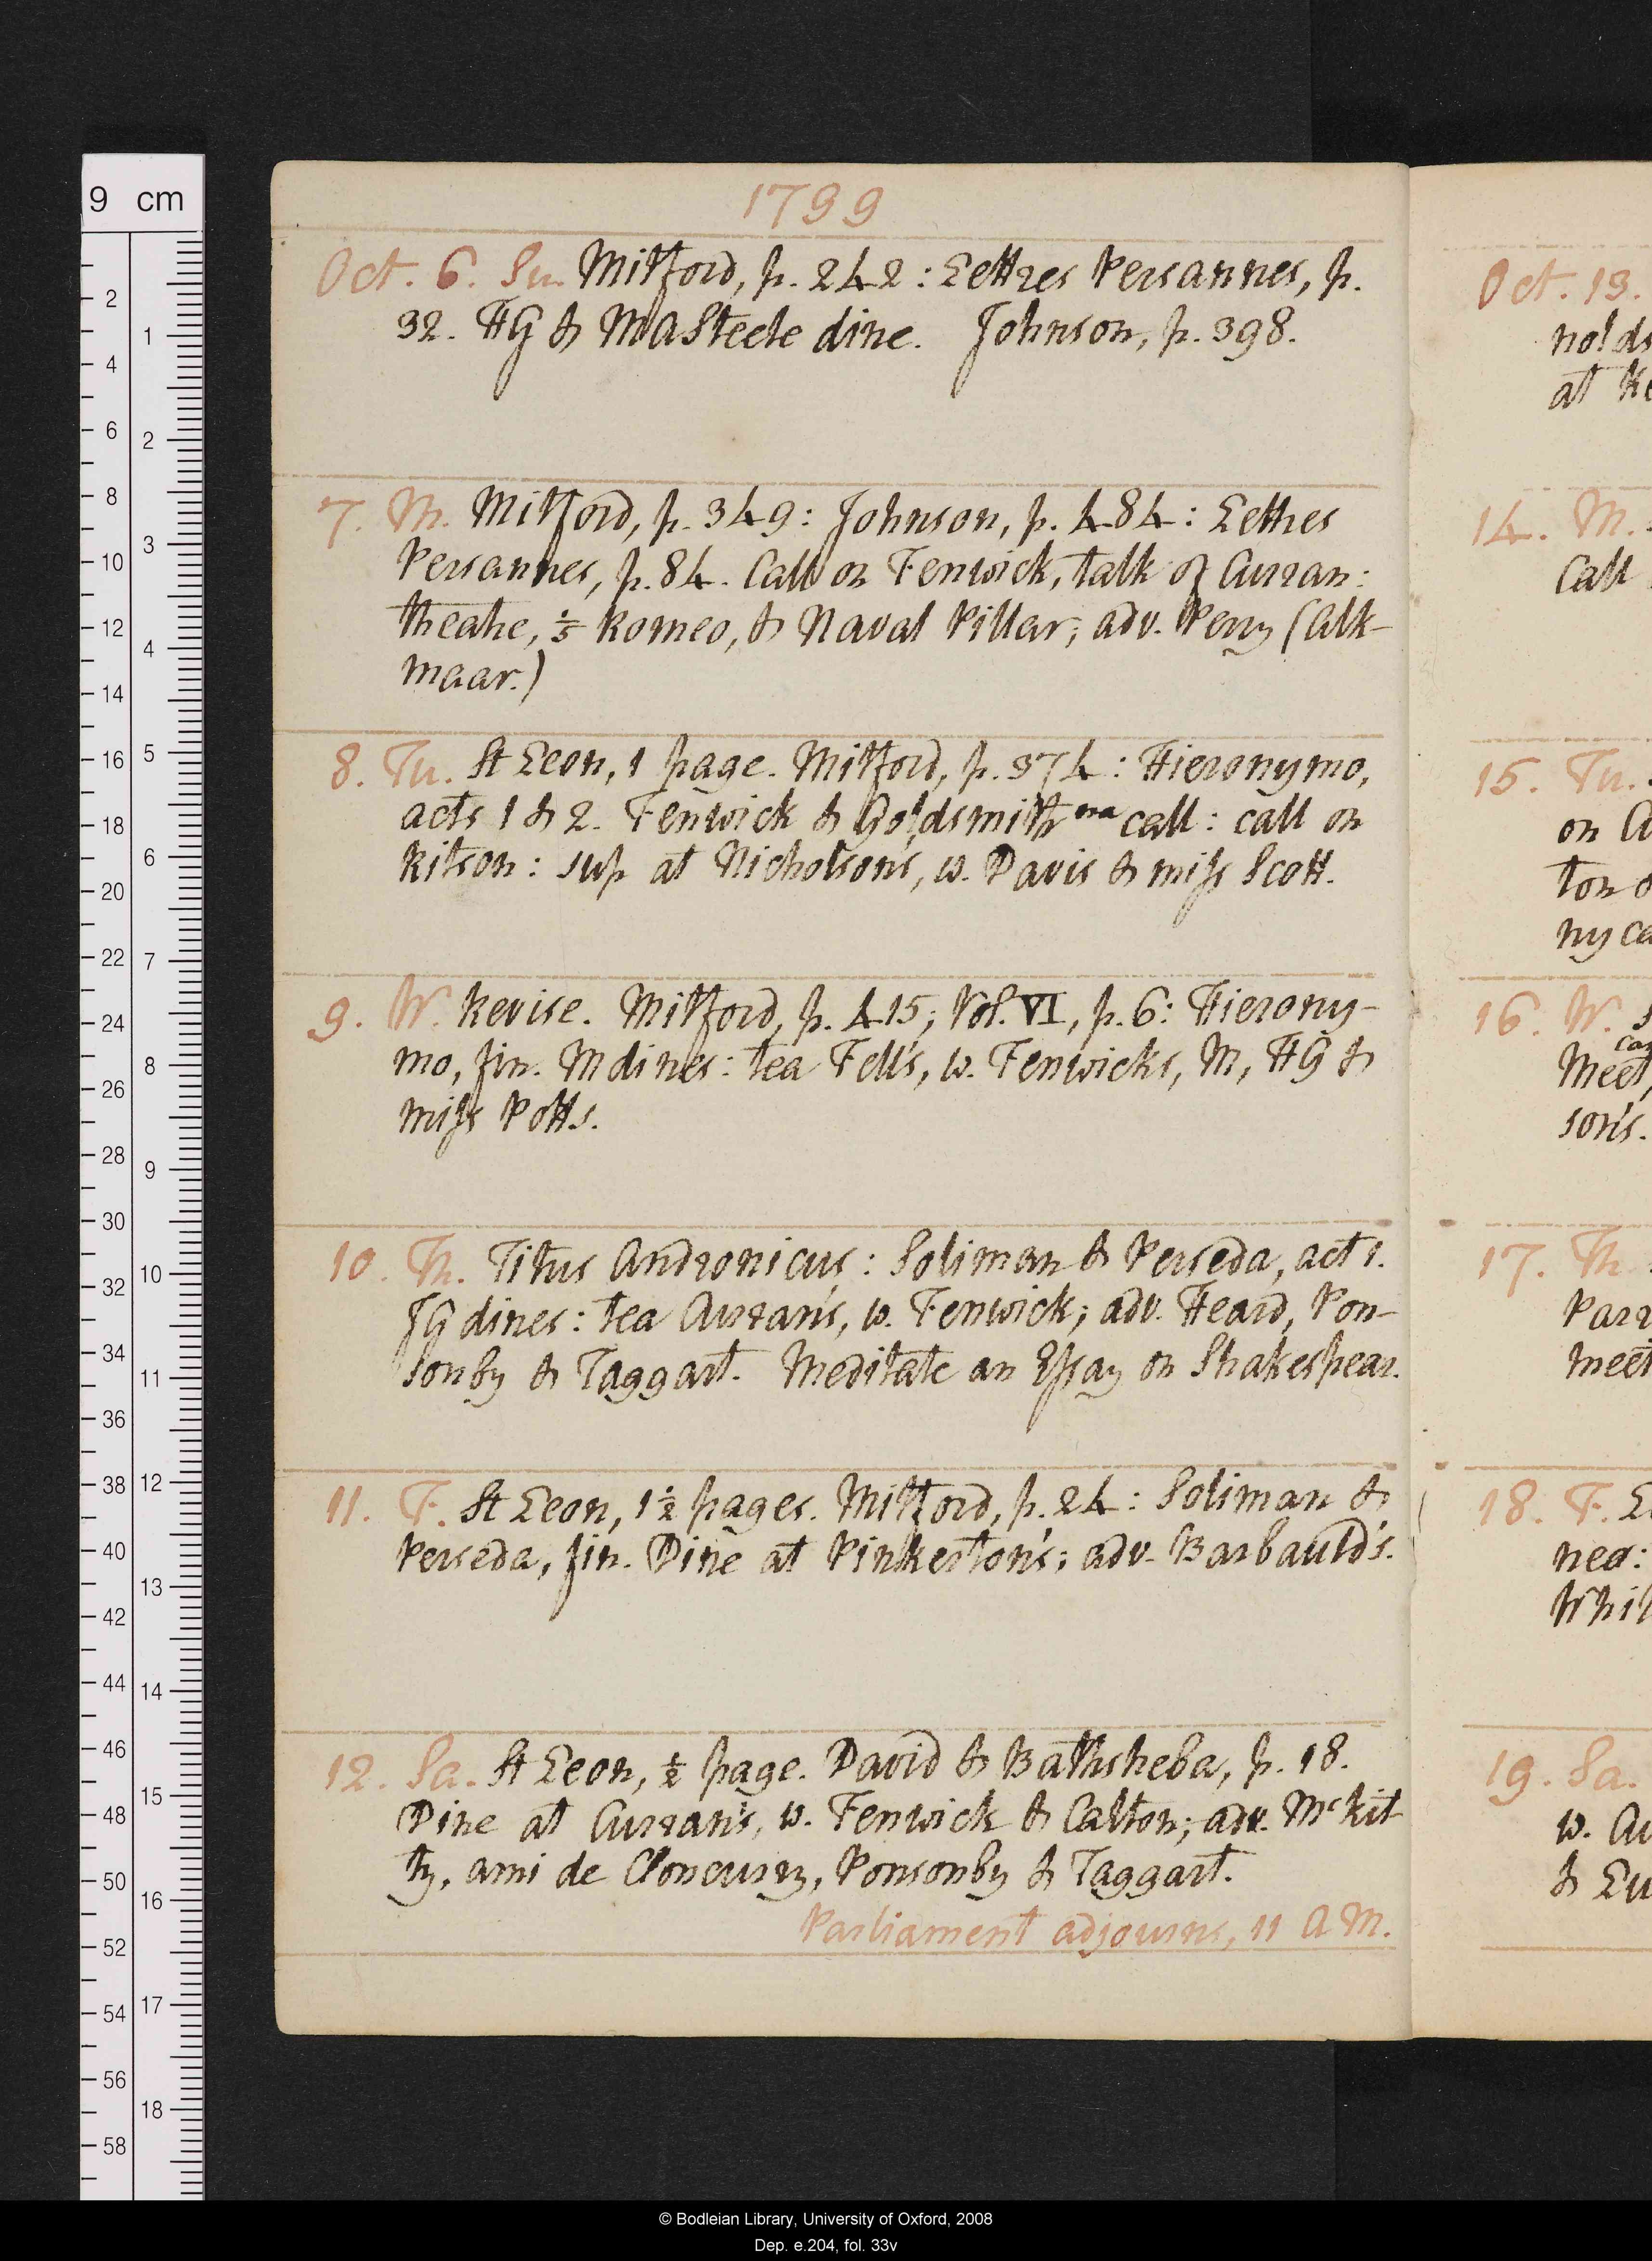 1799
Oct. 6. Su. Mitford, p. 242: Lettres Persannes, p.
32. HG & MA Steele dine. Johnson, p. 398.
7. M. Mitford, p. 349: Johnson, p. 484: Lettres
Persannes, p. 84. Call on Fenwick, talk of Curran:
theatre, ⅕ Romeo, & Naval Pillar; adv. Perry (Alk-
maar.)
8. Tu. St Leon, 1 page. Mitford, p. 374: Hieronymo,
acts 1 & 2. Fenwick & Goldsmith na call: call on
Ritson: sup at Nicholson's, w. Davis & miss Scott.
9. W. Revise. Mitford, p. 415; Vol. VI, p. 6: Hierony-
mo, fin. M dines: tea Fell's, w. Fenwicks, M, HG &
miss Potts.
10. Th. Titus Andronicus: Soliman & Perseda, act 1.
JG dines: tea Curran's, w. Fenwick; adv. Heard, Pon-
sonby & Taggart. Meditate an Essay on Shakespear.
11. F. St Leon, 1½ pages. Mitford, p. 24: Soliman &
Perseda, fin. Dine at Pinkerton's; adv. Barbauld's.
12. Sa. St Leon, ½ page. David & Bathsheba, p. 18.
Dine at Curran's, w. Fenwick & Calton; adv. McKit
ty, ami de Cloncurry, Ponsonby & Taggart.
Parliament adjourns, 11 A M.
Oct. 13.
nolds
at Ke
14. M.
Call
15. Tu.
on
ton
ny ca
16. W.
Meet,
son's.
17. Th
Parr
meet
18. F.
ner:
Whit
19. Sa.
w. Cu
&
9 cm
2
4
6
8
10
12
14
16
18
20
22
24
26
28
30
32
34
36
38
40
42
44
46
48
50
52
54
56
58
1
2
3
4
5
6
7
8
9
10
11
12
13
14
15
16
17
18
© Bodleian Library, University of Oxford, 2008
Dep. e.204, fol. 33v